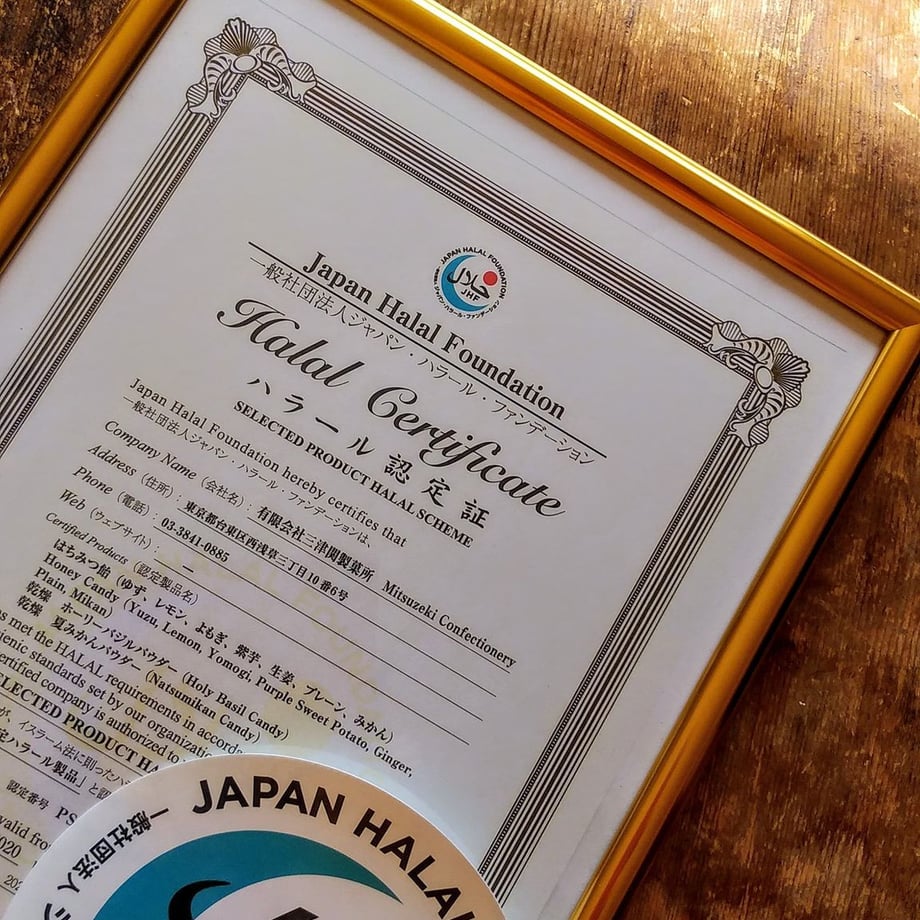 JAPAN HALAL FOUNDATION
حلال
JHF
ジャパン・ハラール・ファンデーション
Japan Halal Foundation
一般社団法人ジャパン・ハラール・ファンデーション
Halal Certificate
ハラール認定証
SELECTED PRODUCT HALAL SCHEME
Japan Halal Foundation hereby certifies that
一般社団法人ジャパン・ハラール・ファンデーションは、
Company Name (会社名) : 有限会社三津関製菓所 Mitsuzeki Confectionery
Address (住所) : 東京都台東区西浅草三丁目10番6号
Phone (電話) : 03-3841-0885
Web (ウェブサイト) : ―
Certified Products (認定製品名)
はちみつ飴 (ゆず、レモン、よもぎ、紫芋、生姜、プレーン、みかん)
Honey Candy (Yuzu, Lemon, Yomogi, Purple Sweet Potato, Ginger,
Plain, Mikan)
乾燥 ホーリーバジルパウダー (Holy Basil Candy)
乾燥 夏みかんパウダー (Natsumikan Candy)
as met the HALAL requirements in accord
ienic standards set by our organizatio
ertified company is authorized to
ELECTED PRODUCT HA
が、イスラーム法に則ったハラ
定ハラール製品」と認
認定番号 PS
valid fro
020
JAPAN HALAL
一般社団法人